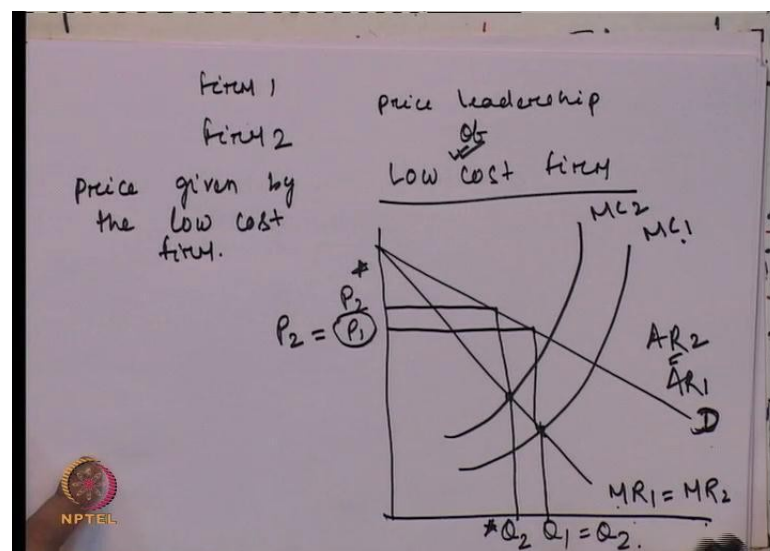 Firm 1
Firm 2
Price given by
the low cost
firm.
Price leadership
of
Low cost firm
MC2
MC1
* P2
P2 = P1
AR2
=
AR1
D
MR1 = MR2
*Q2 Q1 = Q2.
NPTEL